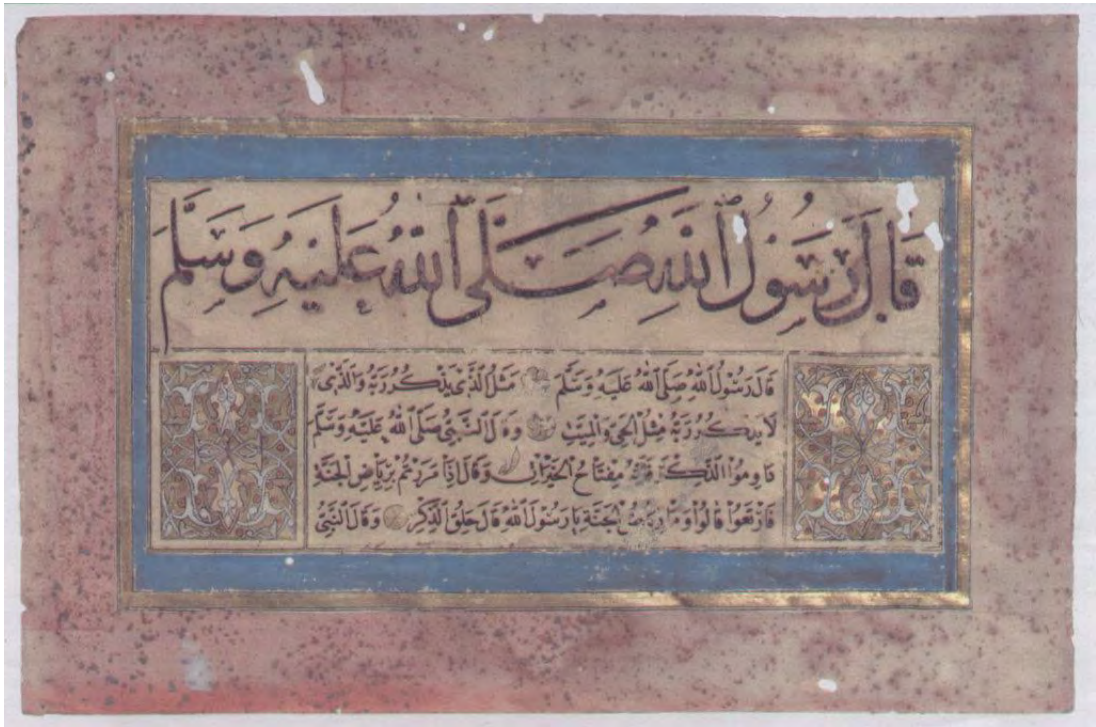 قَالَ رَسُولُ ٱللهِ صَلَّى ٱللهُ عَلَيْهِ وَسَلَّمَ
قَالَ رَسُولُ اللهِ صَلَّى اللهُ عَلَيْهِ وَسَلَّمَ مَثَلُ الَّذِي يَذْكُرُ رَبَّهُ وَالَّذِي
لَا يَذْكُرُ رَبَّهُ مَثَلُ الْحَيِّ وَالْمَيِّتِ وَقَالَ النَّبِيُّ صَلَّى اللهُ عَلَيْهِ وَسَلَّمَ
دَاوِمُوا الذِّكْرَ مِفْتَاحُ وَقَالَ إِذَا مَرَرْتُمْ بِرِيَاضِ الْجَنَّةِ
فَارْتَعُوا قَالُوا وَمَا رِيَاضُ الْجَنَّةِ يَا رَسُولَ اللهِ قَالَ حِلَقُ الذِّكْرِ وَقَالَ النَّبِيُّ